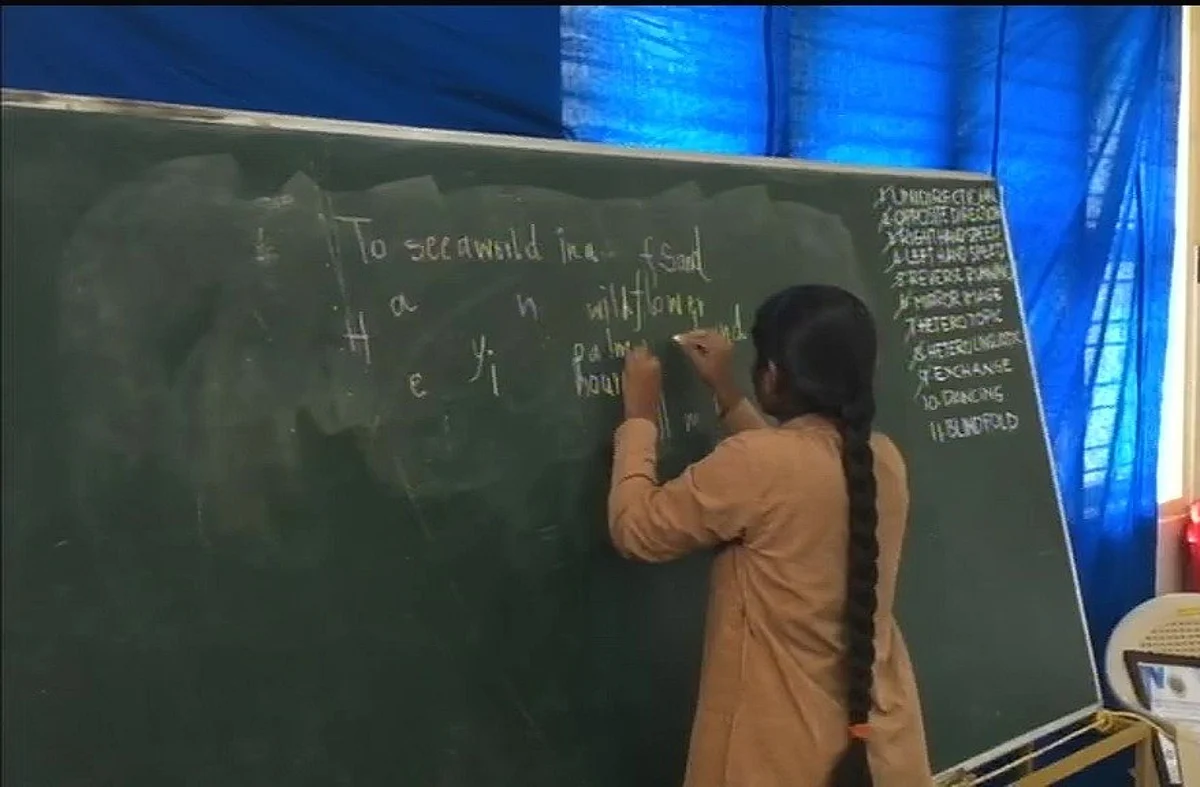 To see a world in a f Sand
a n wild flower
H y palm nd
e i hour
ll m
1. UNIDIRECTIONAL
2. OPPOSITE DIRECTION
3. RIGHT HAND SPEED
4. LEFT HAND SPEED
5. REVERSE RUNNING
6. MIRROR IMAGE
7. HETEROTOPIC
8. HETEROLINGUISTIC
9. EXCHANGE
10. DANCING
11. BLINDFOLD